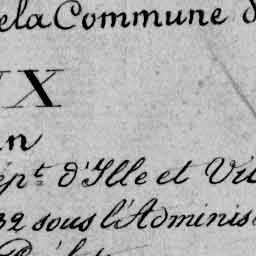 ela Commune d
UX
in
épt d'Ille et Vil
32 sous l'Adminis